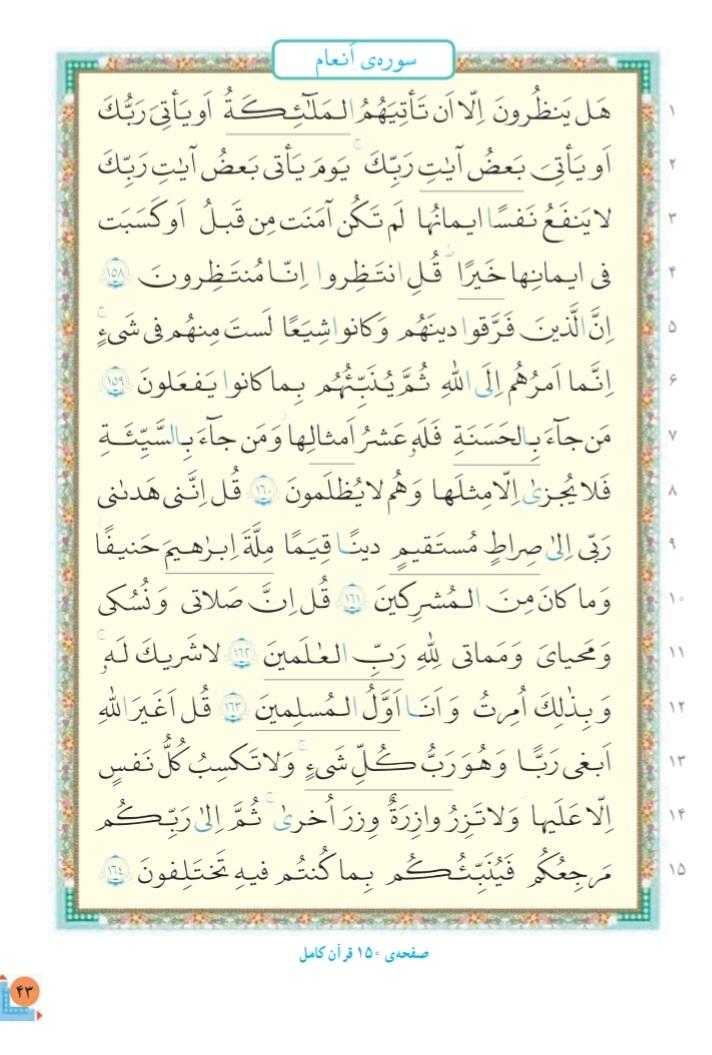 سوره‌ی اَنعام
۱ هَل يَنظُرونَ اِلّا اَن تَأتِيَهُمُ المَلٰٓئِكَةُ اَو يَأتِىَ رَبُّكَ
۲ اَو يَأتِىَ بَعضُ آياتِ رَبِّكَ ۚ يَومَ يَأتى بَعضُ آياتِ رَبِّكَ
۳ لا يَنفَعُ نَفسًا ايمانُها لَم تَكُن آمَنَت مِن قَبلُ اَو كَسَبَت
۴ فى ايمانِها خَيرًا ۗ قُلِ انتَظِروا اِنّا مُنتَظِرونَ ۱۵۸
۵ اِنَّ الَّذينَ فَرَّقوا دينَهُم وَ كانوا شِيَعًا لَستَ مِنهُم فى شَىءٍ ۚ
۶ اِنَّما اَمرُهُم اِلَى اللهِ ثُمَّ يُنَبِّئُهُم بِما كانوا يَفعَلونَ ۱۵۹
۷ مَن جآءَ بِالحَسَنَةِ فَلَهٗ عَشرُ اَمثالِها ۖ وَ مَن جآءَ بِالسَّيِّئَةِ
۸ فَلا يُجزىٰ اِلّا مِثلَها وَ هُم لا يُظلَمونَ ۱۶۰ قُل اِنَّنى هَدٰىنى
۹ رَبّى اِلىٰ صِراطٍ مُستَقيمٍ دينًا قِيَمًا مِلَّةَ اِبرٰهيمَ حَنيفًا
۱۰ وَ ما كانَ مِنَ المُشرِكينَ ۱۶۱ قُل اِنَّ صَلاتى وَ نُسُكى
۱۱ وَ مَحياىَ وَ مَماتى لِلّٰهِ رَبِّ العٰلَمينَ ۱۶۲ لا شَريكَ لَهٗ ۖ
۱۲ وَ بِذٰلِكَ اُمِرتُ وَ اَنَا اَوَّلُ المُسلِمينَ ۱۶۳ قُل اَغَيرَ اللهِ
۱۳ اَبغى رَبًّا وَ هُوَ رَبُّ كُلِّ شَىءٍ ۚ وَ لا تَكسِبُ كُلُّ نَفسٍ
۱۴ اِلّا عَلَيها ۚ وَ لا تَزِرُ وازِرَةٌ وِزرَ اُخرىٰ ۚ ثُمَّ اِلىٰ رَبِّكُم
۱۵ مَرجِعُكُم فَيُنَبِّئُكُم بِما كُنتُم فيهِ تَختَلِفونَ ۱۶۴
صفحه‌ی ۱۵۰ قرآن کامل
۴۳